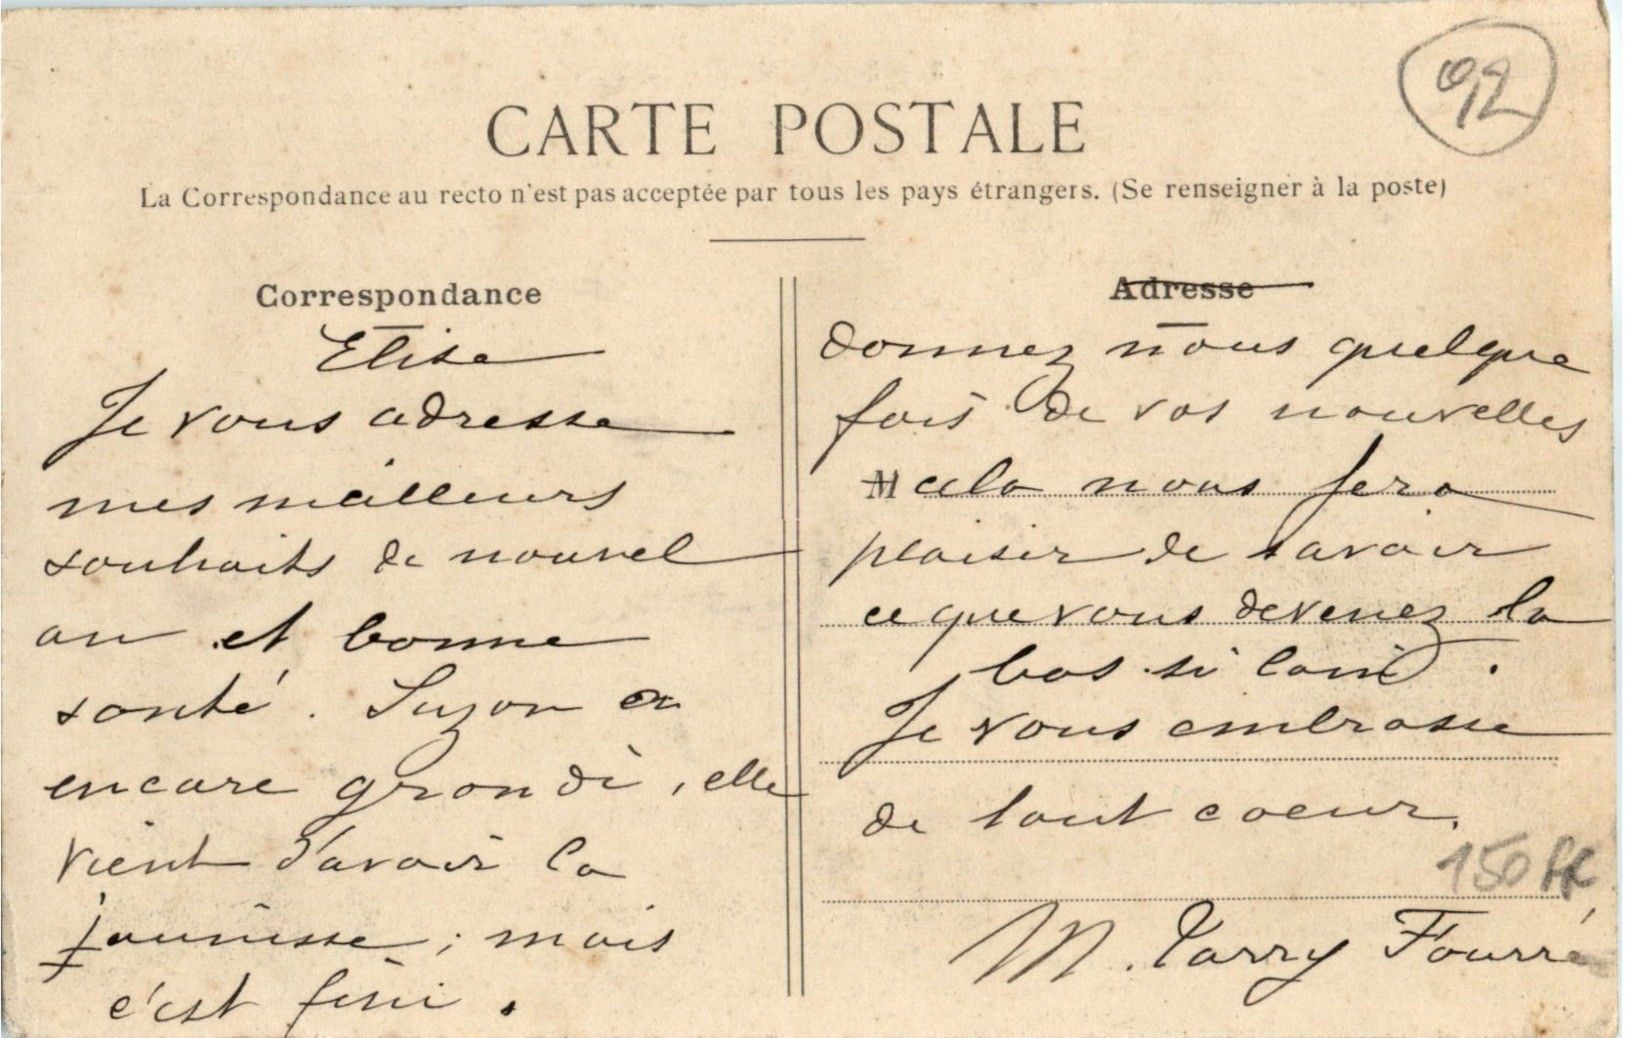 92
CARTE POSTALE
La Correspondance au recto n'est pas acceptée par tous les pays étrangers. (Se renseigner à la poste)
Correspondance
Elise
Je vous adresse
mes meilleurs
souhaits de nouvel
an et bonne
santé. Suzon a
encore grandi, elle
vient d'avoir la
jaunisse ; mais
c'est fini.
Adresse
donnez nous quelque
fois de vos nouvelles
M cela nous fera
plaisir de savoir
ce que vous devenez la
bas si loin.
Je vous embrasse
de tout coeur.
150 ff
M. Tarry Fourré